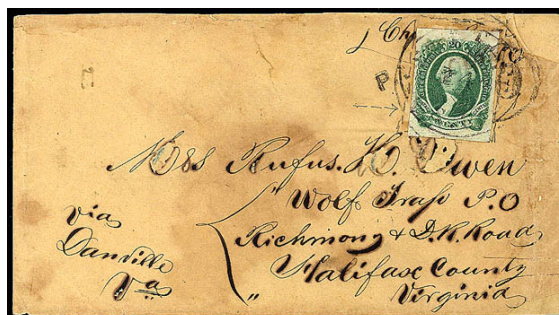 20
TWENTY
Mrs Rufus. K. Owen
Wolf Trap P.O
Richmond & D.R. Road
Halifax County
Virginia
via
Danville
Va